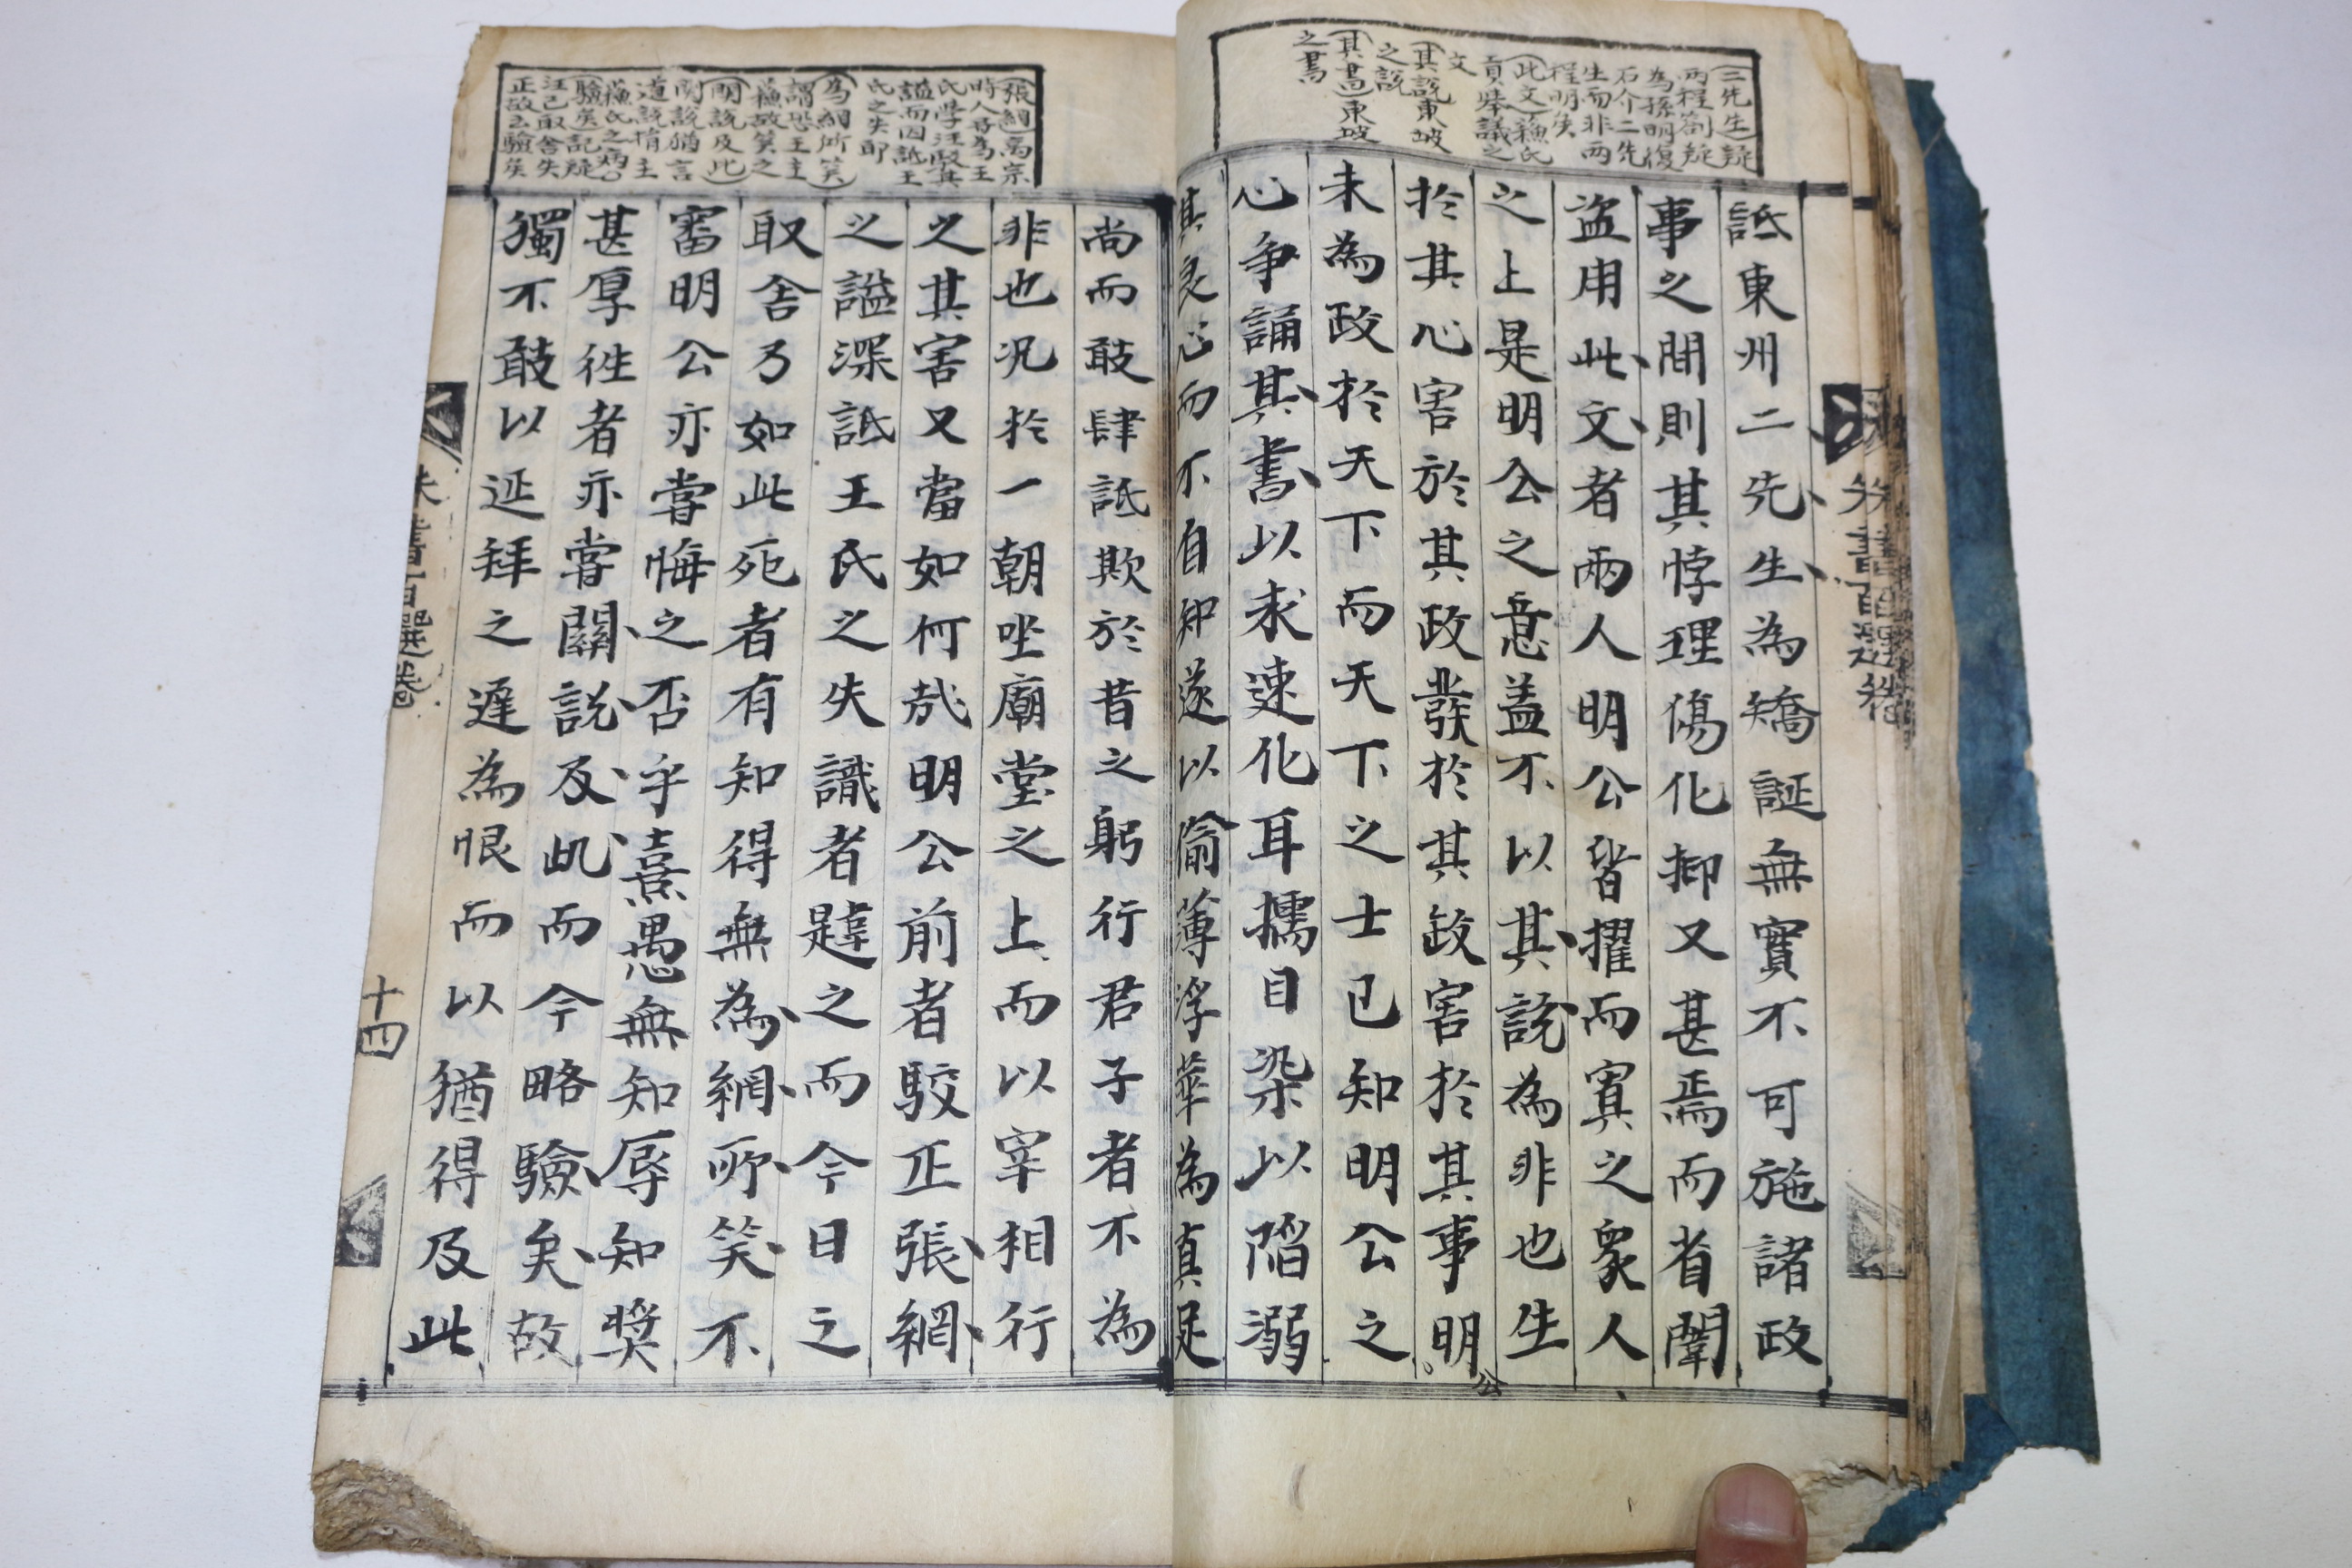 二先生疑
兩程劄疑
為孫明復
石介二先
生而非兩
程明矣
此文蘓氏
貢擧議之
文
其說東坡
之說
其書東坡
之書
詆東州二先生為矯誕無實不可施諸政
事之間則其悖理傷化抑又甚焉而省闈
盜用此文者兩人明公皆擢而寘之衆人
之上是明公之意盖不以其說為非也生
於其心害於其政發於其政害於其事明公
未為政於天下而天下之士已知明公之
心争誦其書以求速化耳擩目染以陷溺
其良心而不自知遂以偷薄浮華為真足
朱書百選卷
張綱高宗
時人甞為王
氏學汪駁其
謚而因詆王
氏之失耶
為綱所笑
謂恐王主
蘓故笑之
關說及此
關說猶言
道說指主
蘓氏之病○
驗矣記疑
汪已取舍失
正故云驗矣
尚而敢肆詆欺於昔之躬行君子者不為
非也况於一朝坐廟堂之上而以宰相行
之其害又當如何哉明公前者駮正張綱
之謚深詆王氏之失識者韙之而今日之
取舍乃如此死者有知得無為綱所笑不
審明公亦甞悔之否乎熹愚無知辱知奬
甚厚徃者亦甞關說及此而今略驗矣故
獨不敢以延拜之遲為恨而以猶得及此
朱書百選卷
十四